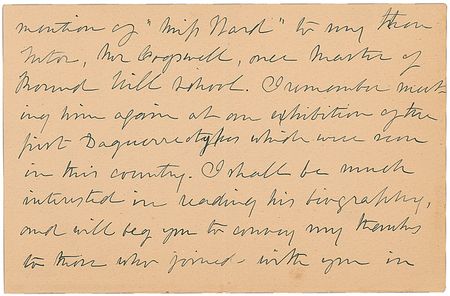 mention of "Miss Ward" to my then
tutor, Mr Cogswell, once Master of
Round Hill School. I remember meet-
ing him again at an exhibition of the
first Daguerreotypes which were seen
in this country. I shall be much
interested in reading his biography,
and will beg you to convey my thanks
to those who joined - with you in